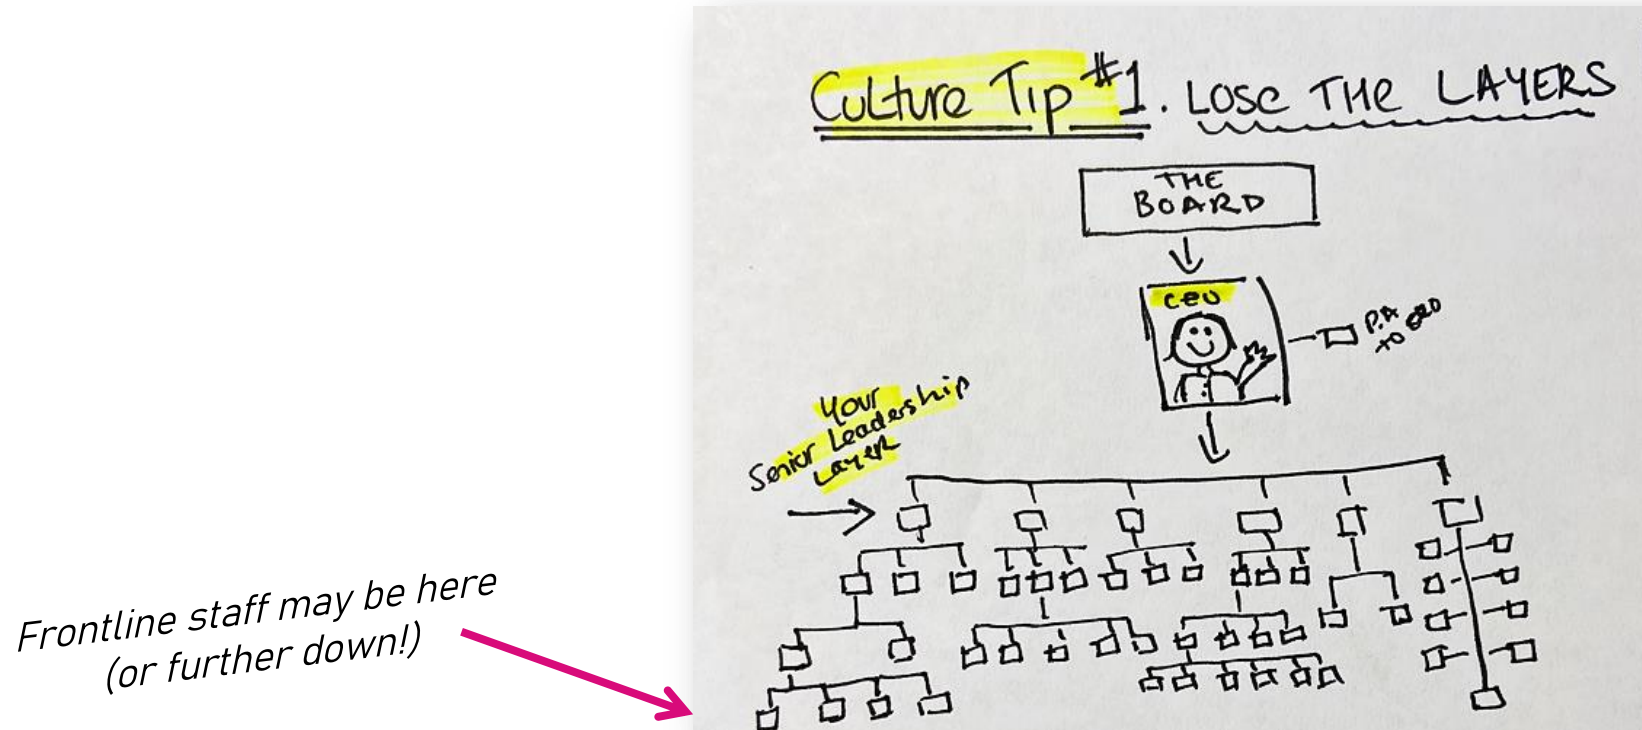 Culture Tip #1. LOSE THE LAYERS
THE
BOARD
CEO
P.A
TO CEO
Your
Senior Leadership
Layer
Frontline staff may be here
(or further down!)